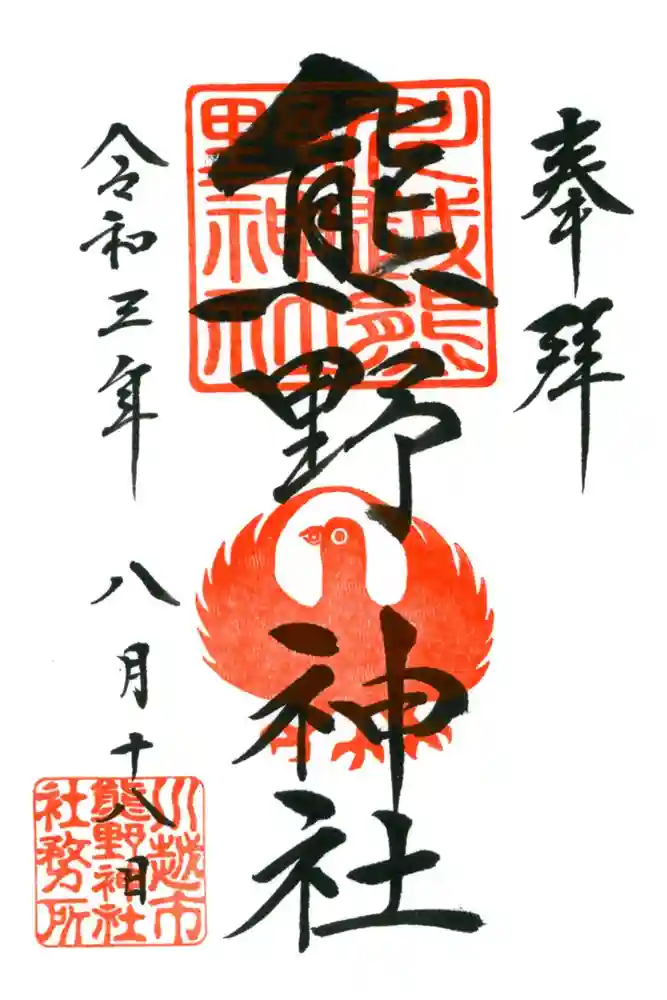 奉拝
熊野神社
川越熊野神社
令和三年 八月十八日
川越市
熊野神社
社務所